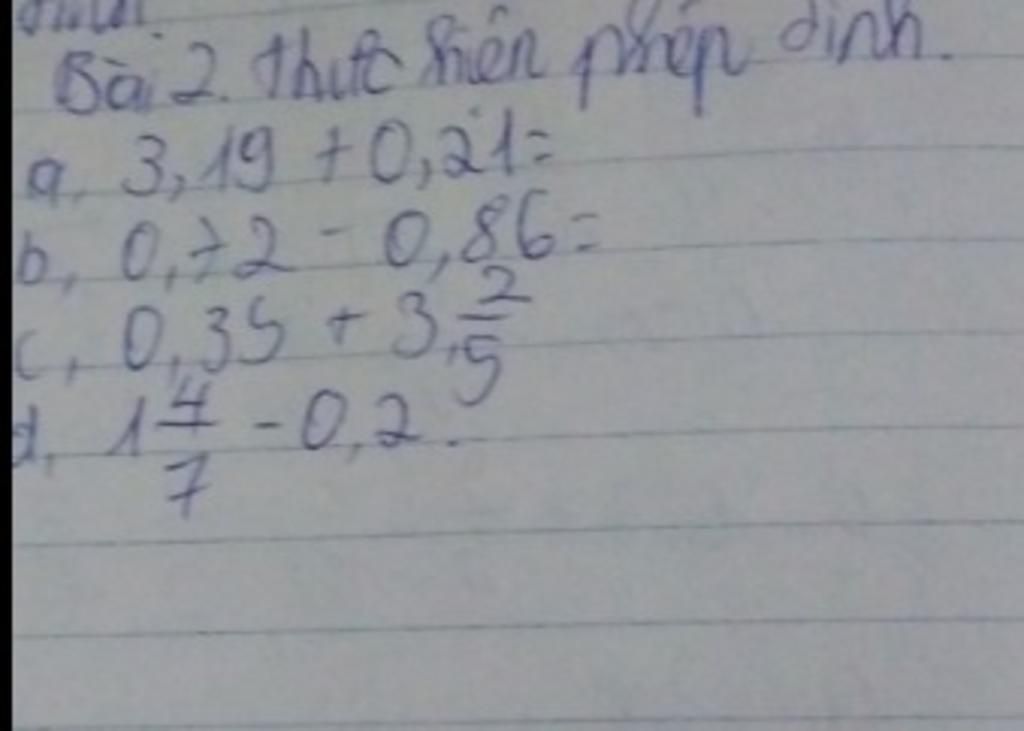 Bài 2. thức hiện phép dinh.
a, 3,19 + 0,21 =
b, 0,72 - 0,86 =
c, 0,35 + 3,2/5
d, 1 4/7 - 0,2.